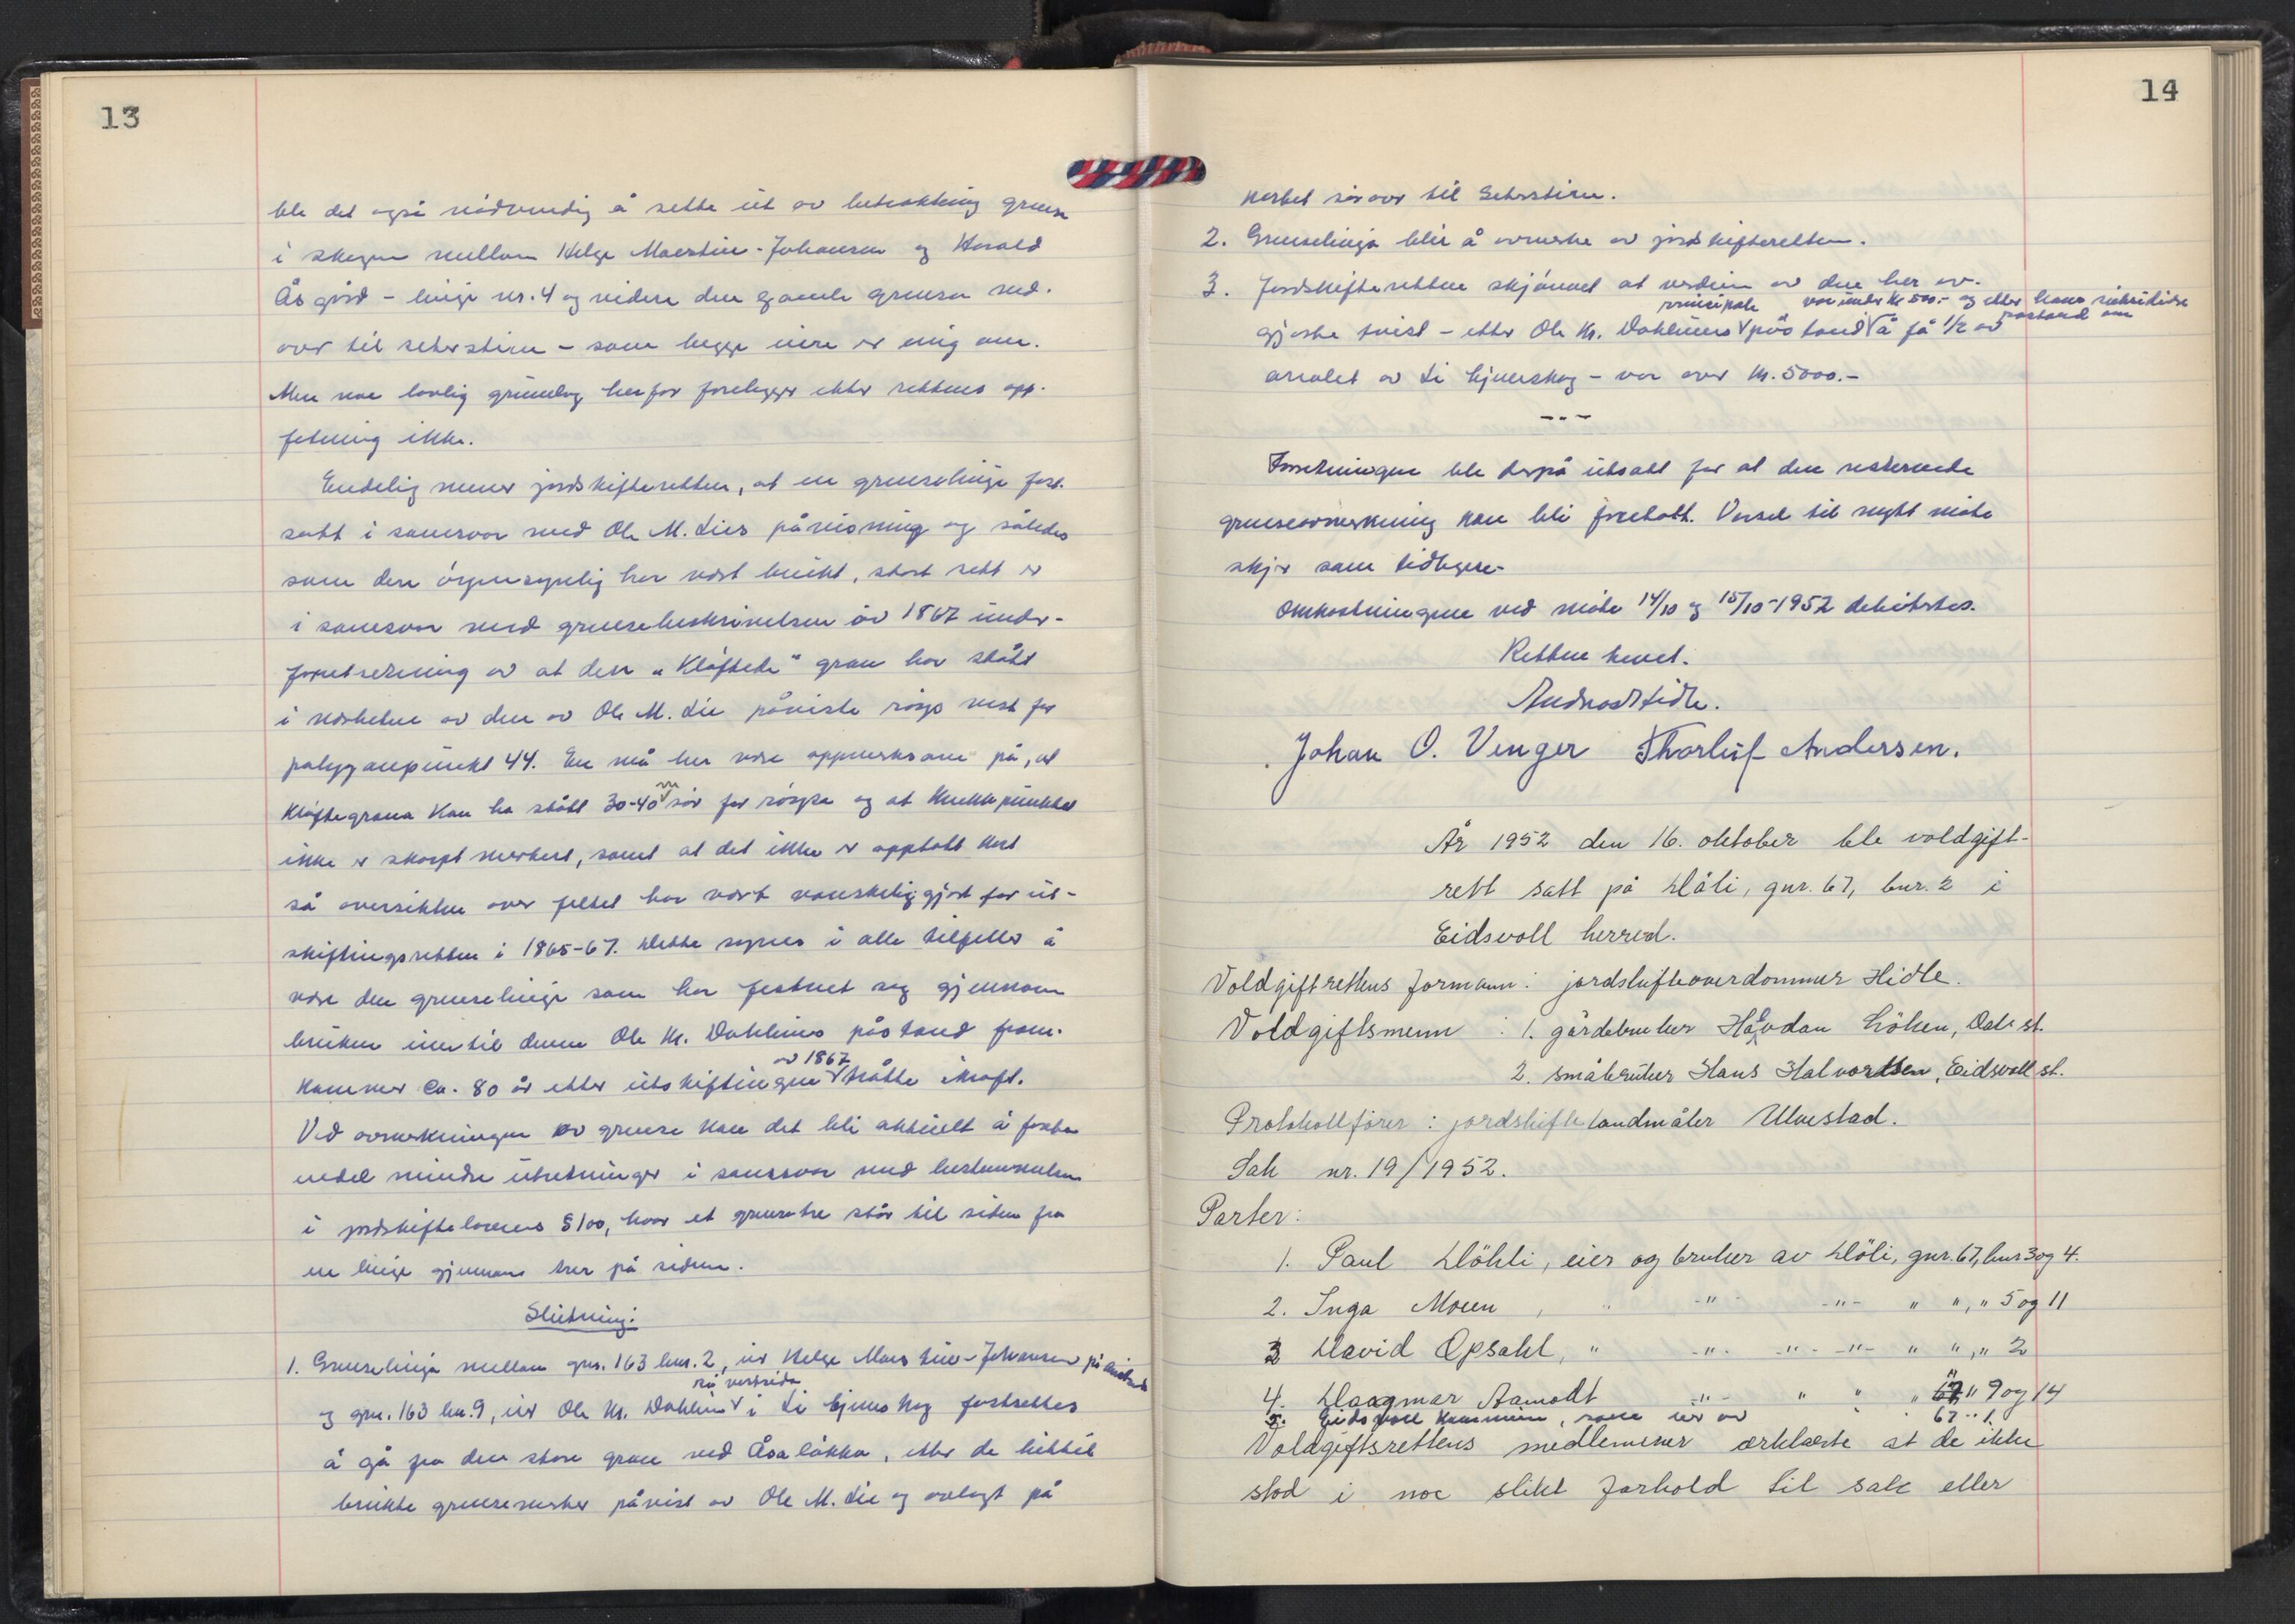 13
ble det også nødvendig å sette ut av betraktning grense
i skogen mellom Helge Martin-Johansen og Harald
Åsgård - linje nr. 4 og videre den gamle grensen ned-
over til seterstien - som begge eiere er enig om.
Men noe lovlig grunnlag herfor foreligger etter rettens opp-
fatning ikke.
Endelig mener jordskifteretten, at en grenselinje fast-
satt i samsvar med Ole M. Lies påvisning og således
som den øyensynlig har vært brukt, stort sett er
i samsvar med grensebeskrivelsen av 1867 under
forutsetning av at den „Kløftede" gran har stått
i nærheten av den av Ole M. Lie påviste røys vest for
polygonpunkt 44. En må her være oppmerksom på, at
Kløftegrana kan ha stått 30-40 m sør for røysa og at knekkpunktet
ikke er skarpt markert, samt at det ikke er opptatt kart
så oversikten over feltet har vært vanskeliggjort for ut-
skiftingsretten i 1865-67. Dette synes i alle tilfeller å
være den grenselinje som har festnet seg gjennom
bruken inntil denne Ole Kr. Dahlins påstand frem-
kommer ca. 80 år etter utskiftingen av 1867 trådte i kraft.
Ved avmerkningen av grense kan det bli aktuelt å foreta
endel mindre utretninger i samsvar med bestemmelsen
i jordskiftelovens § 100, hvor et grensetre står til siden for
en linje gjennom trær på siden.
Slutning:
1. Grenselinja mellom gnr. 163 bnr. 2, eier Helge Martin-Johansen på austsida
og gnr. 163 bnr. 9, eier Ole Kr. Dahlin på vestsida i Li hjemskog fastsettes
å gå fra den store gran ved Åsaløkka, etter de hittil
brukte grensemerker påvist av Ole M. Lie og avlagt på
14
kartet sørover til Seterstien.
2. Grenselinja blir å avmerke av jordskifteretten.
3. Jordskifteretten skjønnet at verdien av den her av-
gjorte tvist - etter Ole Kr. Dahlins prinsipale påstand var under kr. 500.- og etter hans subsidiære påstand om å få 1/2 av
arealet av Li hjemskog - var over kr. 5000.-
---
Forretningen ble derpå utsatt for at den resterende
grenseavmerkning kan bli foretatt. Varsel til nytt møte
skjer som tidligere.
Omkostningene ved møte 14/10 og 15/10-1952 debiteres.
Retten hevet.
Andreas Hidle.
Johan O. Venger Thorleif Andersen.
År 1952 den 16. oktober ble voldgift-
rett satt på Døli, gnr. 67, bnr. 2 i
Eidsvoll herred.
Voldgiftrettens formann: jordskifteoverdommer Hidle.
Voldgiftsmenn : 1. gårdbruker Håvdan Løken, Dal st.
2. småbruker Hans Halvorsen, Eidsvoll st.
Protokollfører : jordskiftelandmåler Ulvestad.
Sak nr. 19/1952.
Parter:
1. Paul Døhli, eier og bruker av Döli, gnr. 67, bnr 3 og 4.
2. Inga Moen, " -"- -"- " ", " 5 og 11
3 David Opsahl, " -"- -"- -"- " ", " 2
4. Daagmar Aamodt -"- " " " 67 " 9 og 14
5. Eidsvoll kommune, som eier av " " 67 " 1.
Voldgiftsrettens medlemmer erklærte at de ikke
stod i noe slikt forhold til sak eller